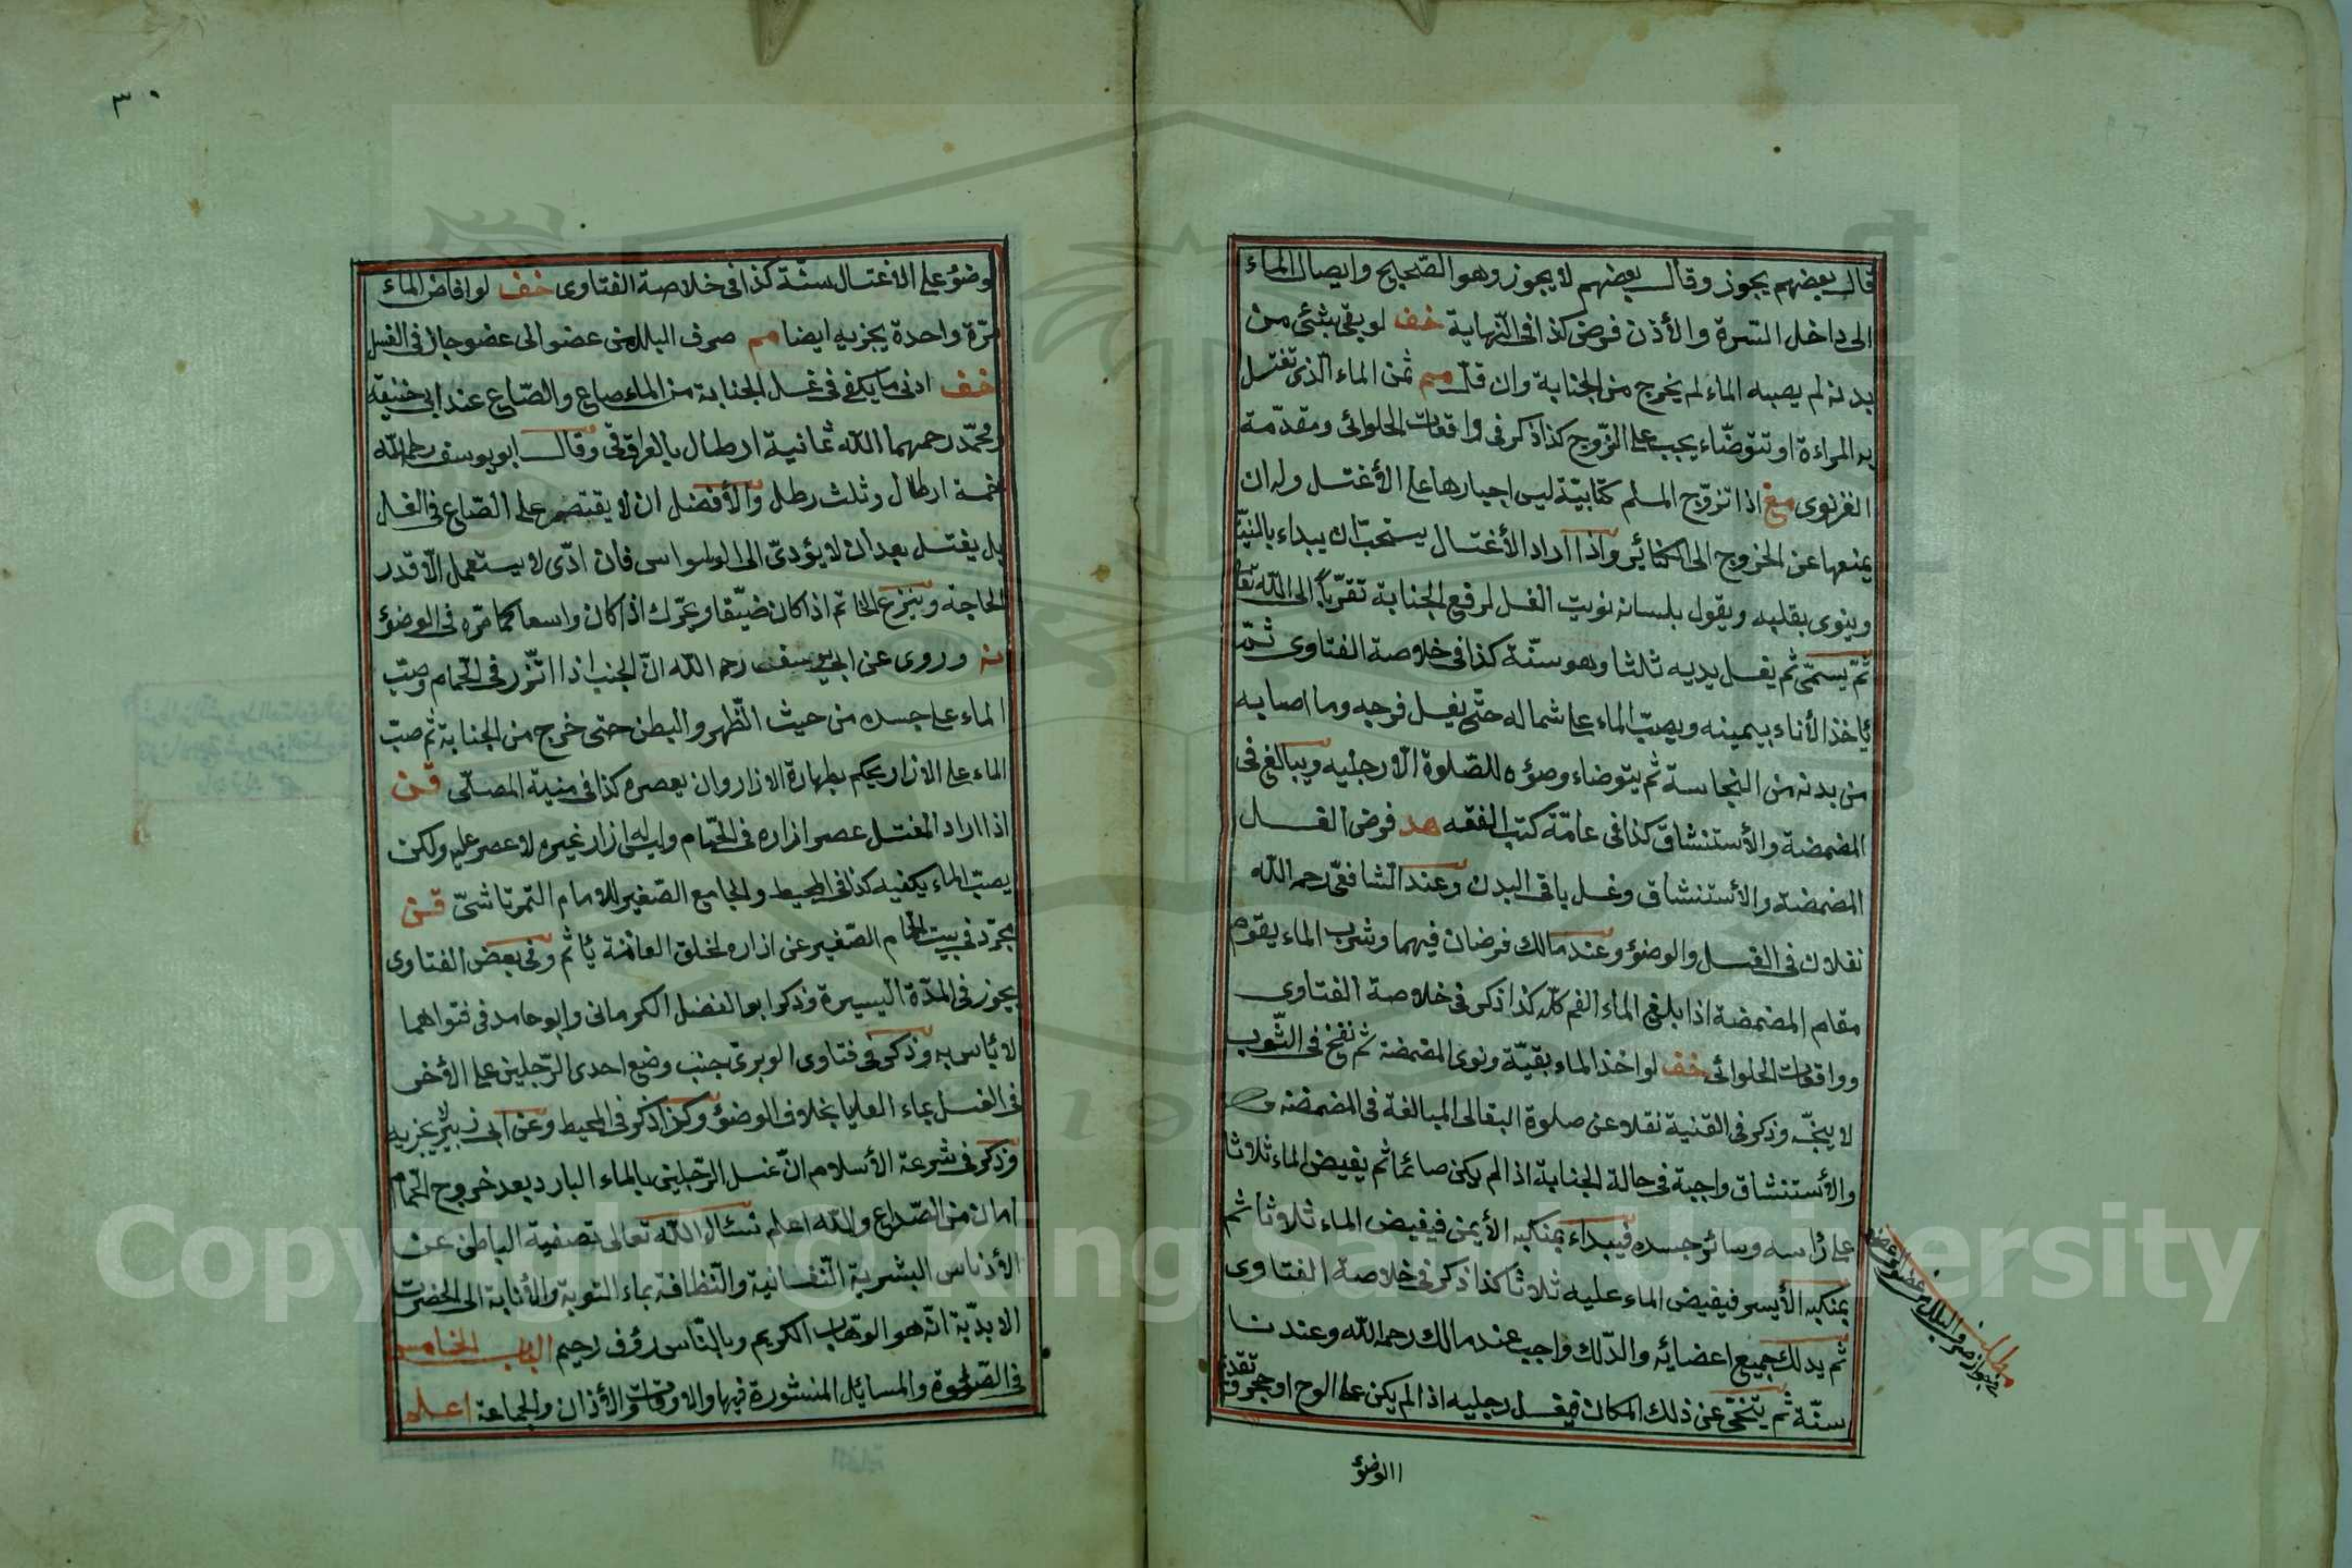 قال بعضهم يجوز وقال بعضهم لا يجوز وهو الصّحيح وايصال الماء
الى داخل السّرة والأذن فرض كذا فى النّهاية خف لو بقى شئ من
بدنه لم يصبه الماء لم يخرج من الجنابة وان قلّ مم ثمن الماء الّذى تغتسل
به المراءة او تتوضّاء يجب على الزّوج كذا ذكر فى واقعات الحلوائى ومقدّمة
الغزنوى مغ اذا تزوّج المسلم كتابيّة ليس اجبارها على الأغتسل وله ان
يمنعها عن الخروج الى الكنائير واذا اراد الأغتسال يستحبّ ان يبداء بالنيّة
وينوى بقلبه ويقول بلسانه نويت الغسل لرفع الجنابة تقرّباً الى الله تعالى
ثمّ يسمّى ثم يغسل يديه ثلثا وهو سنّة كذا فى خلاصة الفتاوى ثمّ
يأخذ الأناء بيمينه ويصبّ الماء على شماله حتّى يغسل فرجه وما اصابه
من بدنه من النجاسة ثم يتوضاء وضؤه للصّلوة الّا رجليه ويبالغ فى
المضمضة والأستنشاق كذا فى عامّة كتب الفقه هد فرض الغسل
المضمضة والأستنشاق وغسل باقى البدن وعند الشافعّى رحمه الله
نفلان فى الغسل والوضؤ وعند مالك فرضان فيهما وشرب الماء يقوم
مقام المضمضة اذا بلغ الماء الفم كلّه كذا ذكر فى خلاصة الفتاوى
وواقعات الحلوائى خف لو اخذ الماء بقيّة ونوى المضمضة ثم نفخ فى الثّوب
لا ينجّسه وذكر فى القنية نقلا عن صلوة البقالى المبالغة فى المضمضة
والأستنشاق واجبة فى حالة الجنابة اذا لم يكن صائما ثم يفيض الماء ثلاثا
على رأسه وسائر جسده فيبداء بمنكبه الأيمن فيفيض الماء ثلاثا ثم
بمنكبه الأيسر فيفيض الماء عليه ثلاثا كذا ذكر فى خلاصة الفتاوى
ثم يدلك جميع اعضائه والدّلك واجب عند مالك رحمه الله وعندنا
سنّة ثم يتنحّى عن ذلك المكان فيغسل رجليه اذا لم يكن على الوح او حجر وتقديم
الوضؤ
مطلب
فى جواز صرف البلل من عضو الى عضو
٣٠
وضؤ على الاغتسال سنّة كذا فى خلاصة الفتاوى خف لو افاض الماء
مرّة واحدة يجزيه ايضا مم صرف البلل من عضو الى عضو جاز فى الغسل
خف ادنى ما يكفى فى غسل الجنابة من الماء صاع والصّاع عند ابى حنيفة
ومحمّد رحمهما الله ثمانية ارطال بالعراقى وقال ابو يوسف رحمه الله
خمسة ارطال وثلث رطل والأفضل ان لا يقتصر على الصّاع فى الغسل
بل يغتسل بعد ان لا يؤدىّ الى الوسواس فان ادّى لا يستعمل الّا قدر
الحاجة وينزع الخاتم اذا كان ضيّقا ويحرّك اذا كان واسعا كما مرّه فى الوضؤ
نه وروى عن ابى يوسف رحمه الله انّ الجنب اذا اتّزر فى الحمام وصبّ
الماء على جسده من حيث الظّهر والبطن حتى خرج من الجنابة ثم صبّ
الماء على الازار يحكم بطهارة الازار وان لم يعصره كذا فى منية المصلّى قن
اذا اراد المغتسل عصر ازاره فى الحمّام وليس له ازار غيره لا عصر عليه ولكن
يصبّ الماء يكفيه كذا فى المحيط والجامع الصّغير للامام التّمرتاشىّ قن
تجرّد فى بيت الحمام الصّغير عن ازاره لحلق العانة يأثم وفى بعض الفتاوى
يجوز فى المدّة اليسيرة وذكر ابو الفضل الكرمانى وابو حامد فى فتواهما
لا بأس به وذكر فى فتاوى الوبرى جنب وضع احدى الرّجلين على الأخرى
فى الغسل بماء العليا بخلاف الوضؤ وكذا ذكر فى المحيط وعن ابى زبير لا يجزيه
وذكر فى شرعة الأسلام انّ غسل الرّجلين بالماء البارد بعد خروج الحمام
امان من الصّداع والله اعلم نسئال الله تعالى تصفية الباطن عن
الأدناس البشرية النّفسانية والنّظافة بماء التوبة والأنابة الى الحضرت
الابديّة انّه هو الوهّاب الكريم وبالنّاس رؤف رحيم الباب الخامس
فى الصّلوة والمسايل المنشورة فيها والاوقات والأذان والجماعة اعلم
Copyright © King Saud University